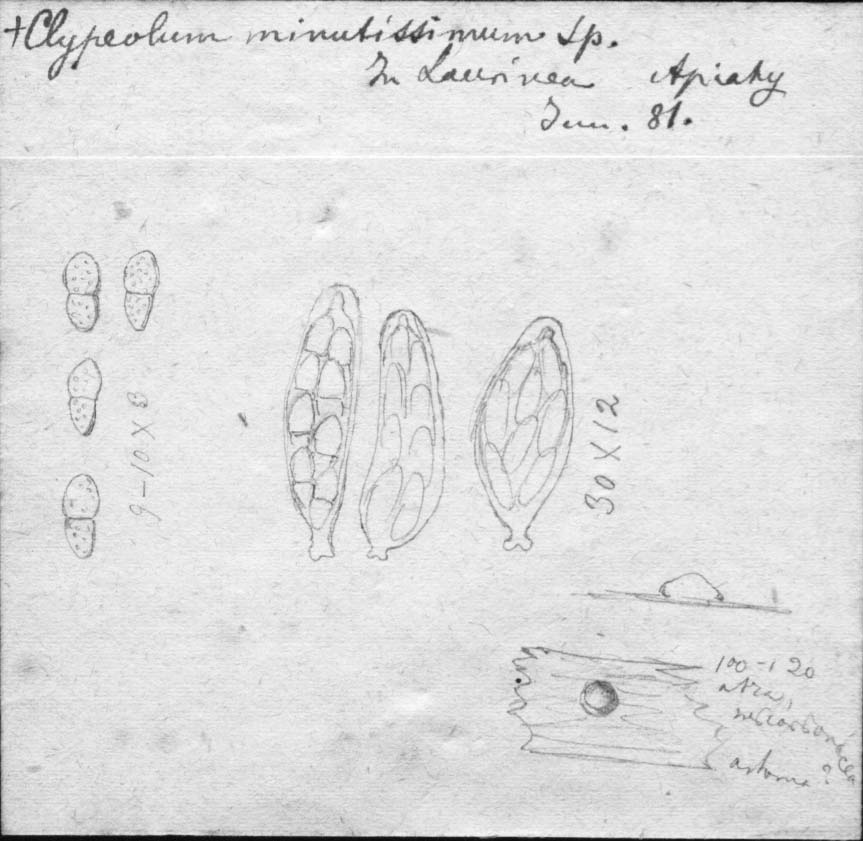 +Clypeolum minutissimum Sp.
In Laurinea Apiahy
Jun. 81.
9-10 X 3
30 X 12
100-120
atra,
astoma?